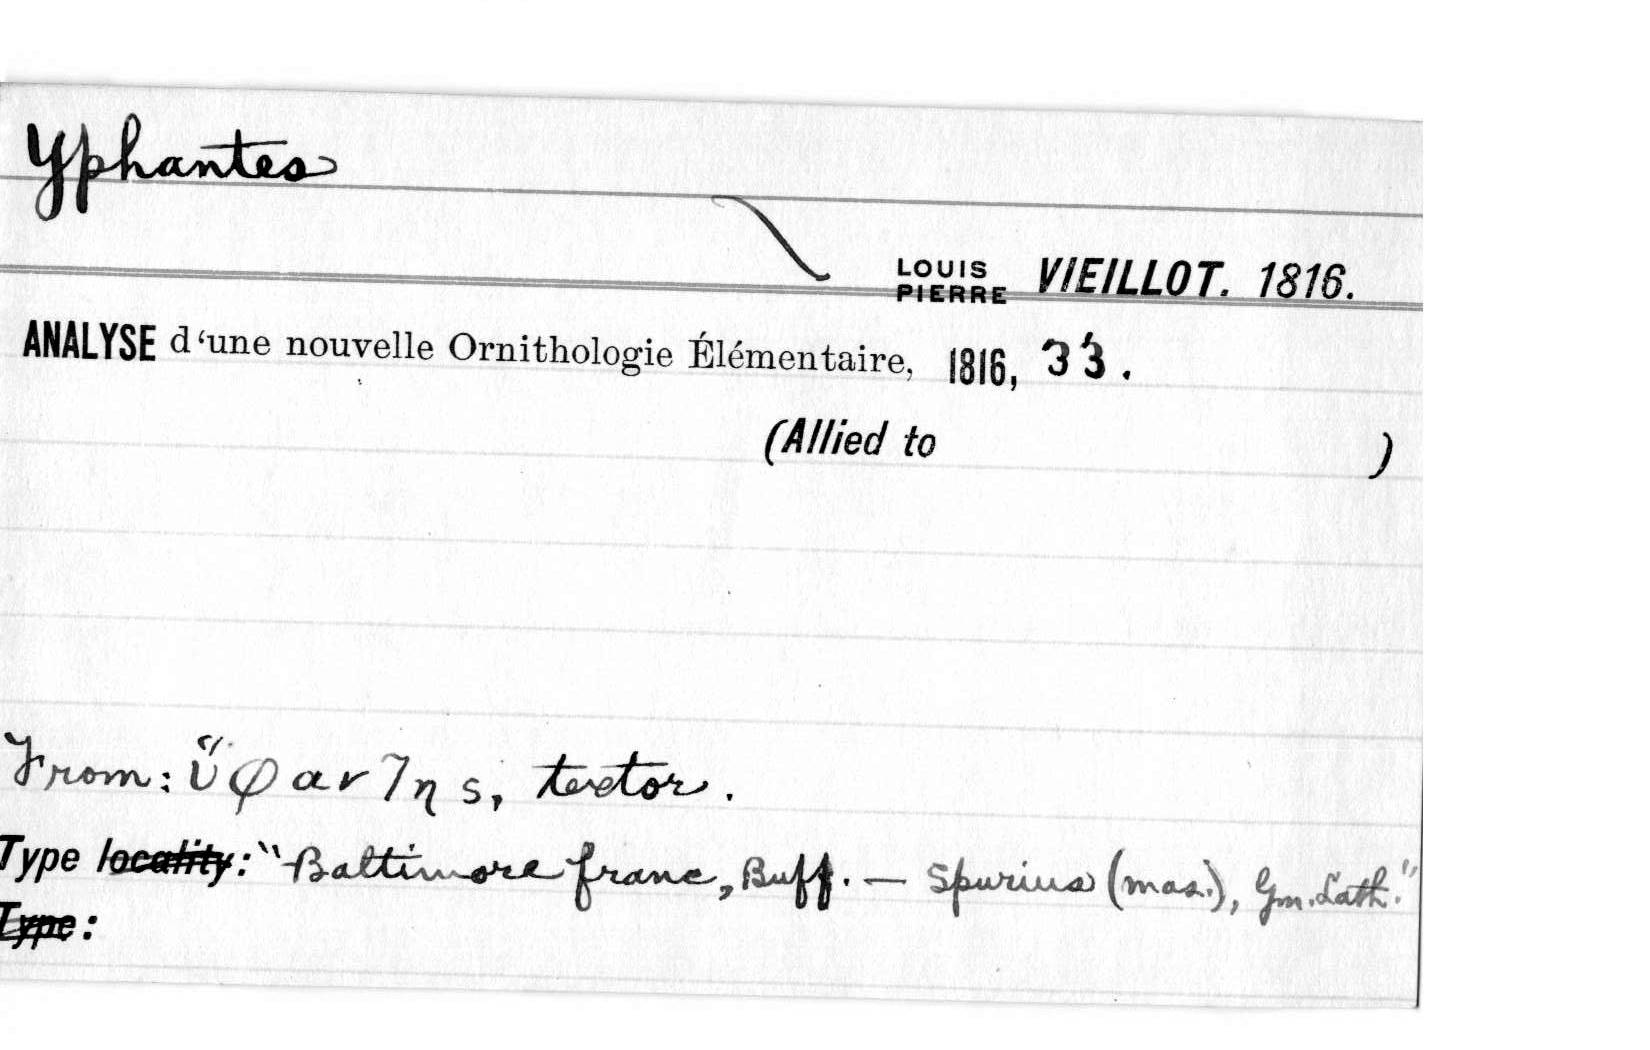 Yphantes
LOUIS PIERRE VIEILLOT. 1816.
ANALYSE d'une nouvelle Ornithologie Élémentaire, 1816, 33.
(Allied to )
From: ὑφαντης, textor.
Type locality: "Baltimore franc, Buff. — Spurius (mas.), Gm. Lath."
Type: